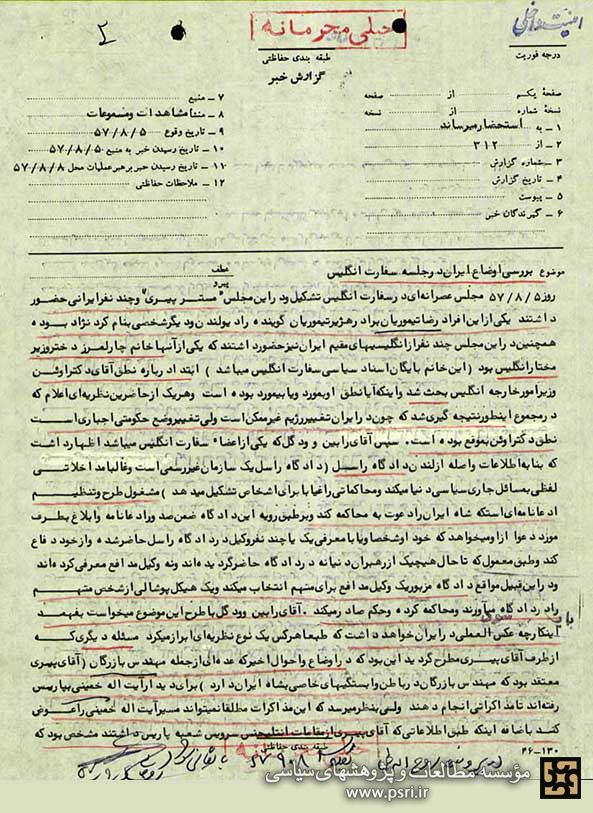 ۲
خیلی محرمانه
طبقه بندی حفاظتی
گزارش خبر
درجه فوریت
صفحه یکم از صفحه
نسخه شماره از نسخه
۱ - به استحضار میرساند
۲ - از ۳۱۲
۳ - شماره گزارش
۴ - تاریخ گزارش
۵ - پیوست
۶ - گیرندگان خبر
۷ - منبع
۸ - منشأ مشاهدات و مسموعات
۹ - تاریخ وقوع ۵۷/۸/۵
۱۰ - تاریخ رسیدن خبر به منبع ۵۷/۸/۵
۱۱ - تاریخ رسیدن خبر برهبر عملیات محل ۵۷/۸/۸
۱۲ - ملاحظات حفاظتی
موضوع بررسی اوضاع ایران در جلسه سفارت انگلیس
عطف
پیرو
روز ۵۷/۸/۵ مجلس عصرانه ای در سفارت انگلیس تشکیل و در این مجلس "مستر پیبری" و چند نفر ایرانی حضور
داشتند یکی از این افراد رضا تیموریان برادر هژیر تیموریان گوینده رادیو لندن و دیگر شخصی بنام کرد نژاد بوده
همچنین در این مجلس چند نفر از انگلیسیهای مقیم ایران نیز حضور داشتند که یکی از آنها خانم چارلمرز دختر وزیر
مختار انگلیس بود (این خانم بایگان اسناد سیاسی سفارت انگلیس میباشد) ابتدا درباره نطق آقای دکتر اوئن
وزیر امور خارجه انگلیس بحث شد و اینکه آیا نطق او بمورد و یا بیمورد بوده است وهریک از حاضرین نظریه ای اعلام که
در مجموع اینطور نتیجه گیری شد که چون در ایران تغییر رژیم غیر ممکن است ولی تغییر وضع حکومتی اجباری است
نطق دکتر اوئن بموقع بوده است. سپس آقای رابین وودگل که یکی از اعضاء سفارت انگلیس میباشد اظهار داشت
که بنا به اطلاعات واصله از لندن دادگاه راسل (دادگاه راسل یک سازمان غیر رسمی است و غالباً مداخلاتی
لفظی بمسائل جاری سیاسی دنیا میکند و محاکماتی را غیاباً برای اشخاص تشکیل میدهد) مشغول طرح و تنظیم
ادعانامه ای استکه شاه ایران را دعوت به محاکمه کند و بر طبق رویه این دادگاه ضمن صدور ادعانامه و ابلاغ بطرف
مورد دعوا از او میخواهد که خود او شخصاً و یا با معرفی یک یا چند نفر وکیل در دادگاه راسل حاضر شده و از خود دفاع
کند و طبق معمول که تا حال هیچیک از رهبران دنیا نه در دادگاه حاضر گردیده اند و نه وکیل مدافع معرفی کرده اند
و در این قبیل مواقع دادگاه مزبور یک وکیل مدافع برای متهم انتخاب میکند و یک هیکل پوشالی از شخص متهم
را در دادگاه میآورند و محاکمه کرده و حکم صادر میکند. آقای رابین وودگل با طرح این موضوع میخواست بفهمد
اینکار چه عکس العملی در ایران خواهد داشت که طبعاً هرکس یک نوع نظریه ای ابراز میکرد مسئله دیگری که
از طرف آقای پیبری مطرح گردید این بود که در اوضاع و احوال اخیر که عده ای از جمله مهندس بازرگان (آقای پیبری
معتقد بود که مهندس بازرگان در باطن وابستگیهای خاصی بشاه ایران دارد) برای دیدار آیت اله خمینی بپاریس
رفته اند تا مذاکراتی انجام دهند ولی بنظر میرسد که این مذاکرات مطلقاً نمیتواند مسیر آیت اله خمینی را عوض
کند باضافه اینکه طبق اطلاعاتی که آقای پیبری از مقامات انتلیجنس سرویس شعبه پاریس داشتند مشخص بود که
طبقه بندی حفاظتی
خیلی محرمانه
۳۶-۱۳۰
مؤسسه مطالعات و پژوهشهای سیاسی
www.psri.ir